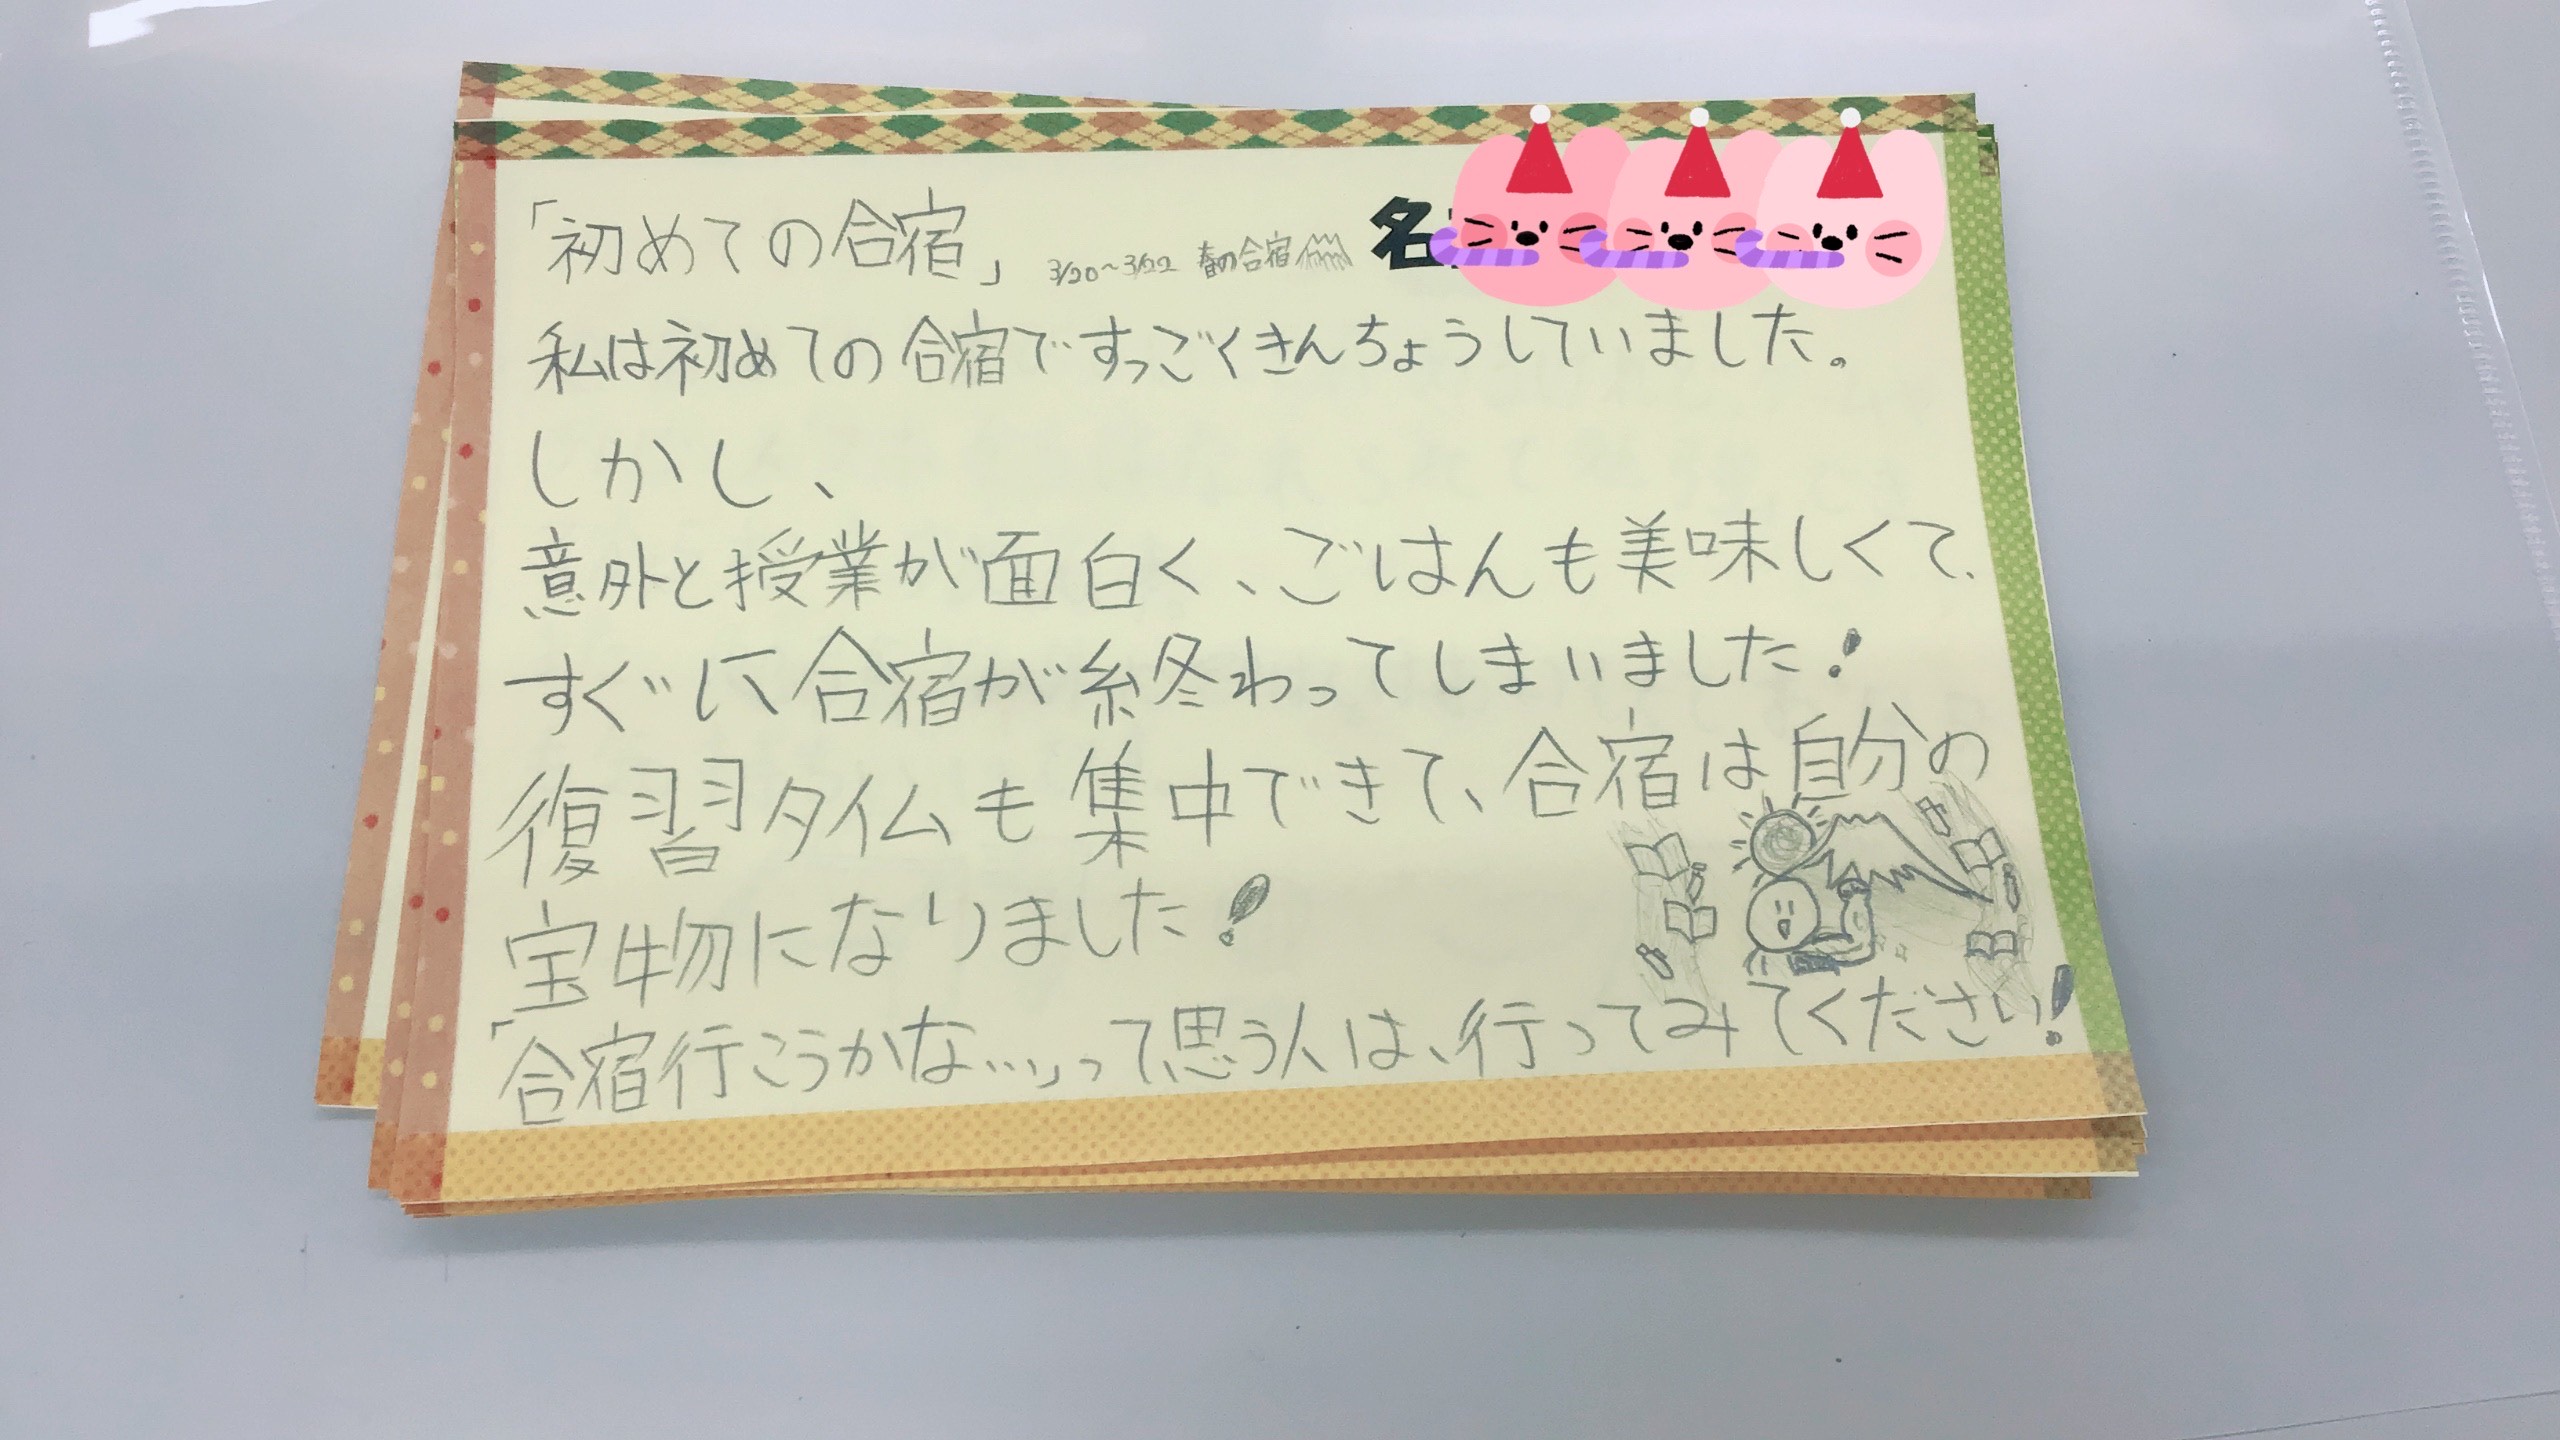 「初めての合宿」 3/20~3/22 春の合宿 名
私は初めての合宿ですっごくきんちょうしていました。
しかし、
意外と授業が面白く、ごはんも美味しくて、
すぐに合宿が終わってしまいました!
復習タイムも集中できて、合宿は自分の
宝物になりました!
「合宿行こうかな…」って思う人は、行ってみてください!